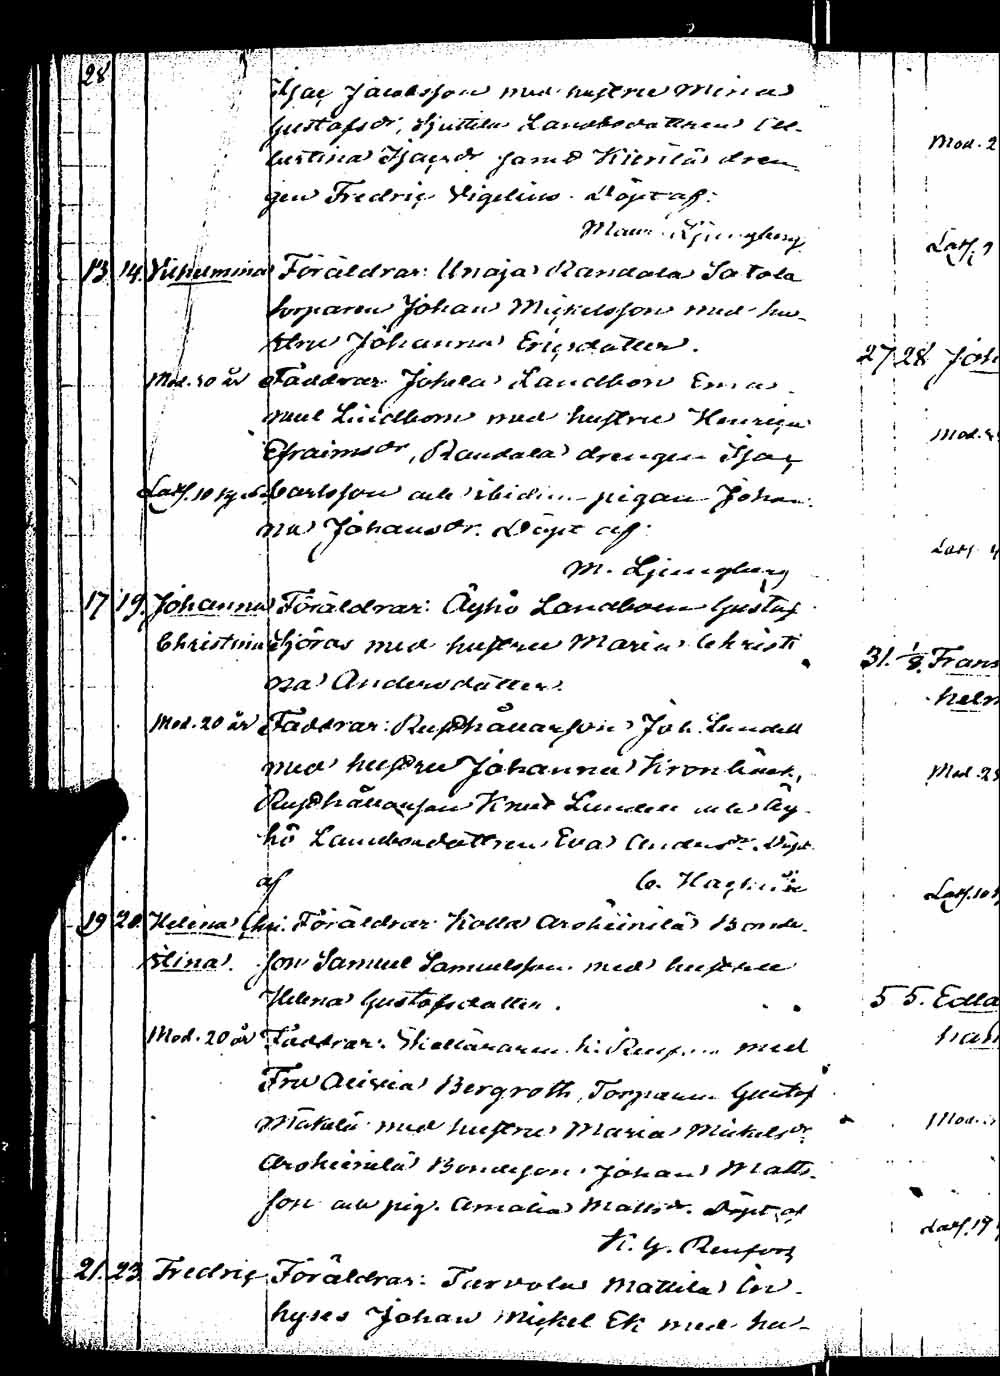 28
Isac Jacobsson med hustru Mina
Gustafsdr, Sjuttila Landbodottren Cel-
lestina Isacsdr samt Kierilä dren-
gen Fredric Vigelius. Döpt af:
Maur. Ljungberg
13 14. Vilhelmina Föräldrar: Unaja Randala Satola
torparen Johan Mickelsson med hu-
stru Johanna Ericsdotter.
Mod. 30 år Faddrar: Landbon Ema-
nuel Lindbom med hustru Henrica
Efraimsdr, Randala drengen Isac
Latf. Carlsson och ibidem pigan Johan-
na Johansdr. Döpt af:
M. Ljungberg
17 19. Johanna Föräldrar: Äyhö Landboen Gustaf
Christina Sjöros med hustru Maria Christi
na Andersdotter.
Mod. 20 år Faddrar: Rusthållarson Joh. Lundell
med hustru Johanna Kronbäck,
Rusthållarson Knut Lunden och Äy-
hö Landbodottren Eva Andersdr. Döpt
af C.
19 20. Helena Chri- Föräldrar: Kolla Aroheinilä Bonde-
stina. son Samuel Samuelsson med hustru
Helena Gustafsdotter.
Mod. 20 år Faddrar: K. med
Fru Bergroth, Torparen Gustaf
Mäkelä med hustru Maria Mickelsdr
Aroheinilä Bondeson Johan Matts-
son och pig. Amalia Mattsdr. Döpt af
K. G. Renfors
21. 23 Fredric Föräldrar: Tarvola Mattila In-
hyses Johan Mickel Ek med hu-
Mod. 2
Latf.
27 28 Joh
Mod.
Latf.
31. 1/8. Frans
helm
Mod. 23
Latf. 10
5 5. Edla
han
Mod.
Latf. 19